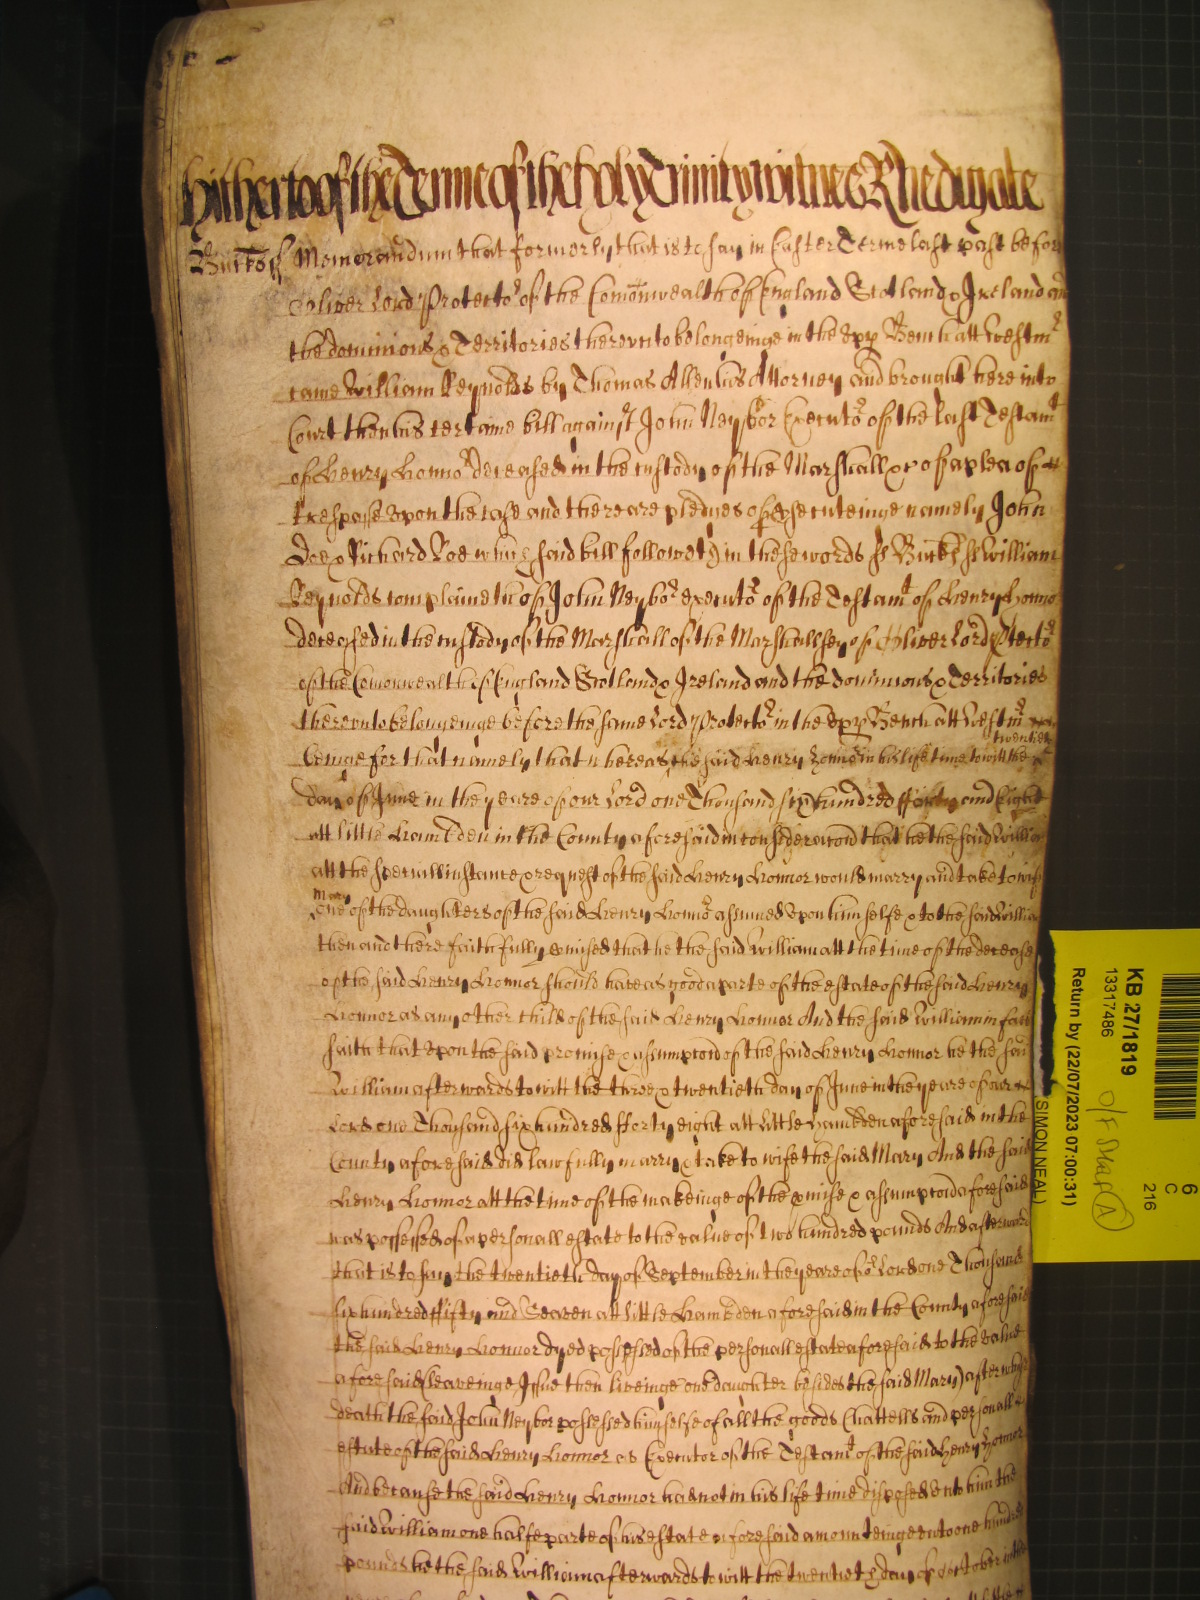 hitherto of the Terme of the holy Trinity witnes R Newdigate
Bucks ss Memorandum that formerly that is to say in Easter Terme last past before
Oliver Lord Protector of the Comonwealth of England Scotland & Ireland and
the dominions & Territories thereunto belongeinge in the upp Bench att Westmr
came William Reynolds by Thomas Allen his Attorney and brought here into
Court then his certaine bill against John Neybor Executor of the last Testamt
of Henry Honnor deceased in the custody of the Marshall &c of a plea of
trespasse upon the case and there are pledges of psecuteinge namely John
Doe & Richard Roe which said bill followeth in these words ss Bucks ss William
Reynolds complaineth of John Neybor executor of the Testamt of Henry Honnor
deceased in the custody of the Marshall of the Marshallsey of Oliver Lord Protector
of the Comonwealth of England Scotland & Ireland and the dominions & Territories
thereunto belongeinge before the same Lord Protector in the upp Bench att Westmr
twentieth
beinge for that namely that whereas the said Henry Honnor in his life time to witt the
day of June in the yeare of our Lord one Thousand six hundred fforty and Eight
att little Hampden in the County aforesaid in consideracon that he the said William
att the speciall instance & request of the said Henry Honnor would marry and take to wife
Mary
one of the daughters of the said Henry Honnor assumed upon himselfe & to the said William
then and there faithfully pmised that he the said William att the time of the decease
of the said Henry Honnor should have as good a parte of the estate of the said Henry
Honnor as any other child of the said Henry Honnor And the said William in fact
saith that upon the said promise & assumpcon of the said Henry Honnor he the said
William afterwards to witt the three & twentieth day of June in the yeare of our
Lord one Thousand six hundred fforty eight att Little Hampden aforesaid in the
County aforesaid did lawfully marry & take to wife the said Mary And the said
Henry Honnor att the time of the makeinge of the pmise & assumpcon aforesaid
was possessed of a personall estate to the value of two hundred pounds And afterwards
that is to say the twentieth day of September in the yeare of or Lord one Thousand
six hundred ffifty and Seaven att little Hampden aforesaid in the County aforesaid
the said Henry Honnor dyed possessed of the personall estate aforesaid to the value
aforesaid (leaveinge Issue then liveinge one daughter besides the said Mary) after whose
death the said John Neybor possessed himselfe of all the goods Chattells and personall
estate of the said Henry Honnor as Executor of the Testamt of the said Henry Honnor
And because the said Henry Honnor had not in his life time disposed unto him the
said William one halfe parte of his estate aforesaid amounteinge unto one hundred
pounds he the said William afterwards to witt the twentieth day of October in the
KB 27/1819
13317486
Return by (22/07/2023 07:00:31)
(SIMON NEAL)
O/F Stag A
6
C
216